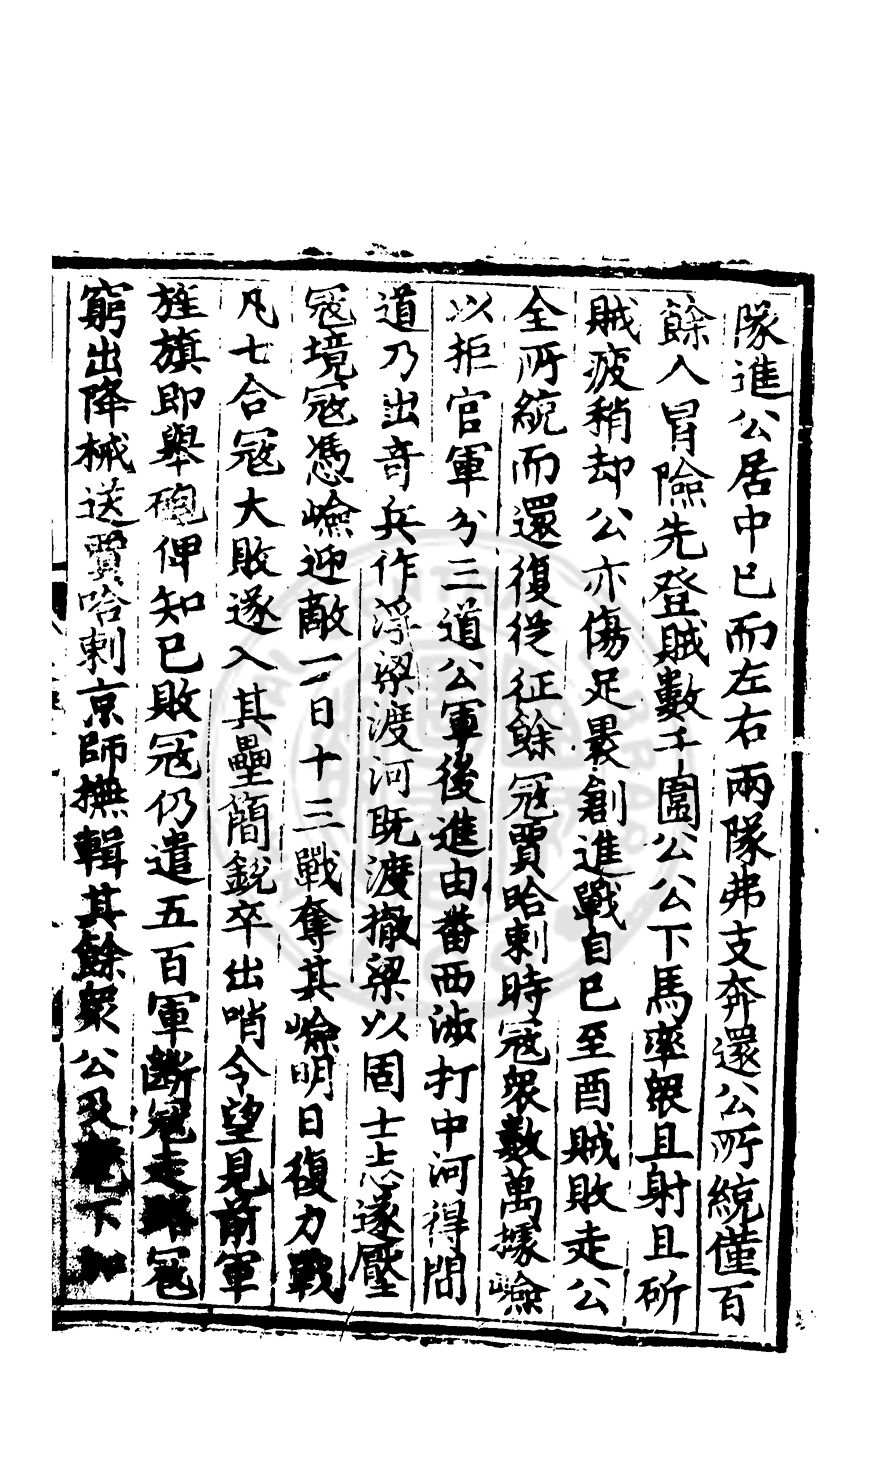 隊進公居中已而左右兩隊弗支奔還公所統僅百
餘入冒險先登賊數千圍公公下馬率衆且射且斫
賊疲稍却公亦傷足裹創進戰自巳至酉賊敗走公
全所統而還復從征餘寇賈哈剌時寇衆數萬據嶮
以拒官軍分三道公軍後進由番西洳打中河得間
道乃出奇兵作浮梁渡河既渡撤梁以固士志遂壓
寇境寇憑嶮迎敵一日十三戰奪其嶮明日復力戰
凡七合寇大敗遂入其壘簡銳卒出哨令望見前軍
旌旗即舉砲俾知已敗寇仍遣五百軍斷寇走路寇
窮出降械送賈哈剌京師撫輯其餘衆公及麾下